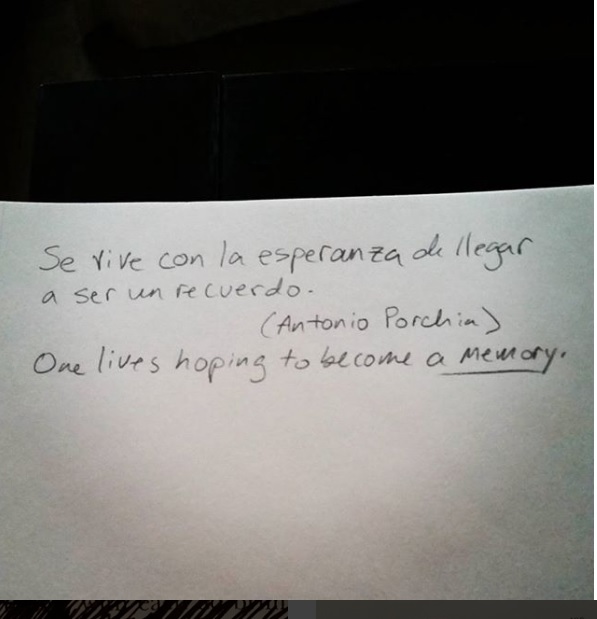 Se vive con la esperanza de llegar
a ser un recuerdo.
(Antonio Porchia)
One lives hoping to become a memory.